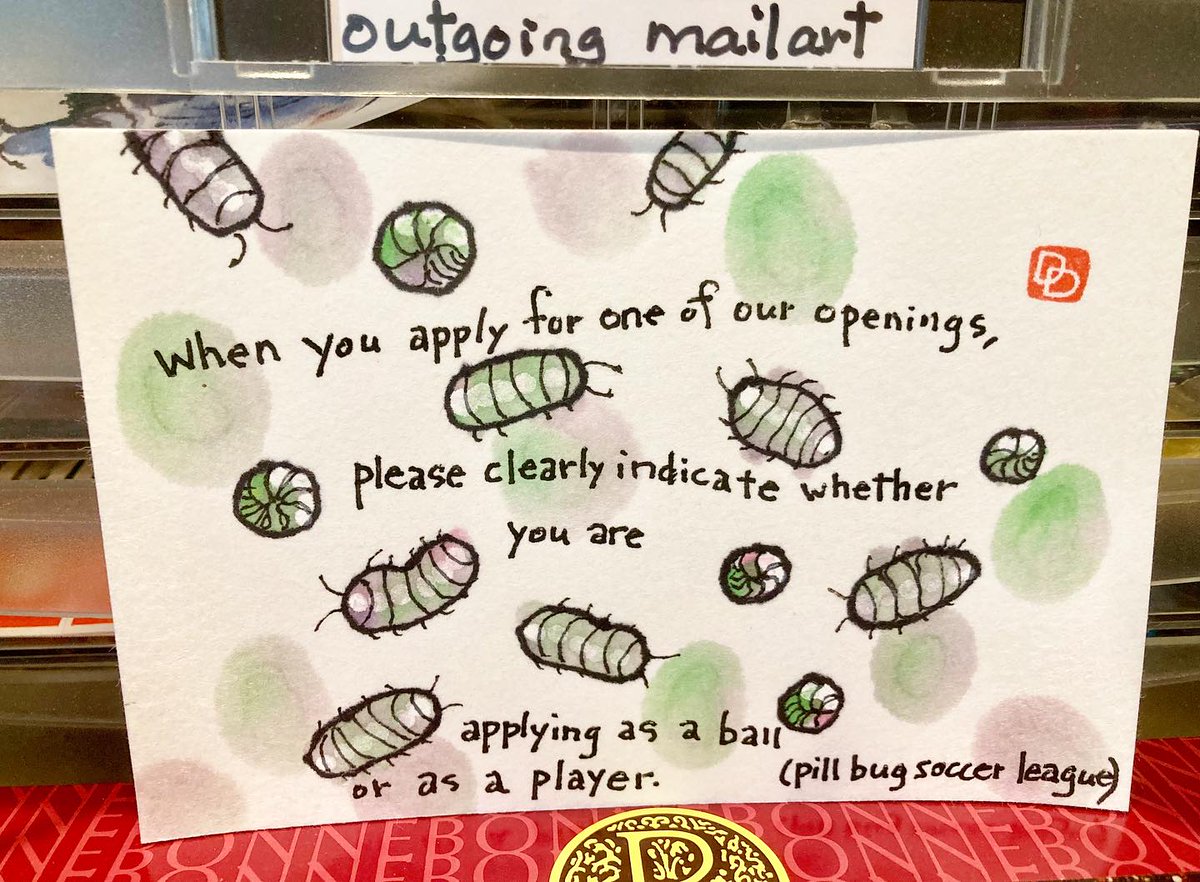 outgoing mailart
DD
When you apply for one of our openings,
please clearly indicate whether
you are
applying as a ball
or as a player.
(pill bug soccer league)
NEBONNEBONNEBONNEBO